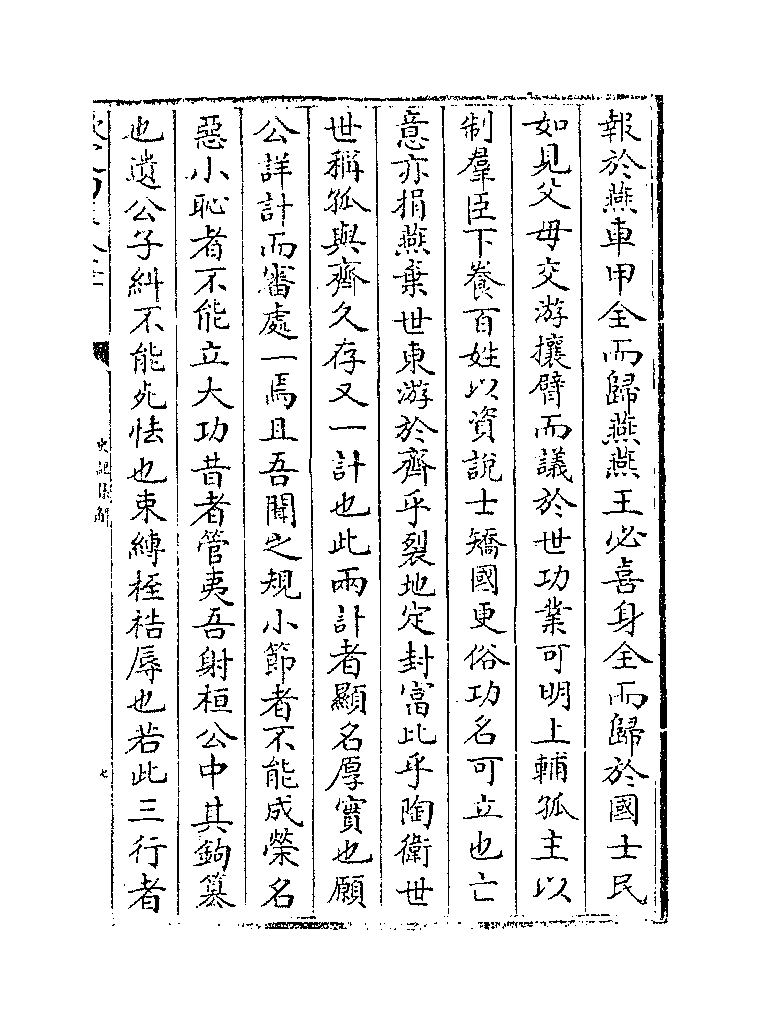 報於燕車甲全而歸燕燕王必喜身全而歸於國士民
如見父母交游攘臂而議於世功業可明上輔孤主以
制羣臣下養百姓以資說士矯國更俗功名可立也亡
意亦捐燕棄世東游於齊乎裂地定封富比乎陶衛世
世稱孤與齊久存又一計也此兩計者顯名厚實也願
公詳計而審處一焉且吾聞之規小節者不能成榮名
惡小恥者不能立大功昔者管夷吾射桓公中其鉤篡
也遺公子糾不能死怯也束縛桎梏辱也若此三行者
史記集解
七